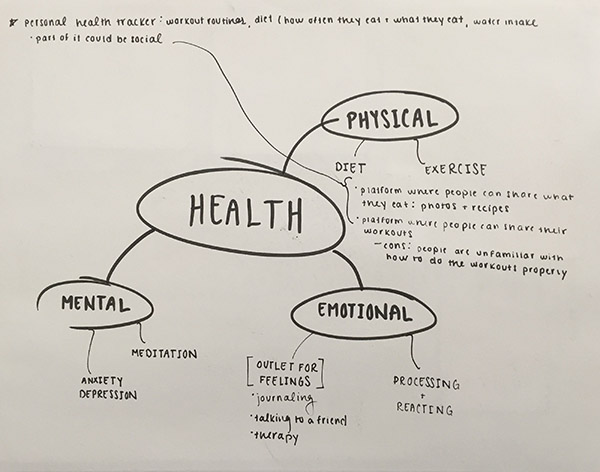 * personal health tracker: workout routines, diet (how often they eat + what they eat, water intake
· part of it could be social
PHYSICAL
DIET
EXERCISE
· platform where people can share what
they eat: photos + recipes
· platform where people can share their
workouts
- cons: people are unfamiliar with
how to do the workouts properly
HEALTH
MENTAL
MEDITATION
ANXIETY
DEPRESSION
EMOTIONAL
[OUTLET FOR
FEELINGS]
· journaling
· talking to a friend
· therapy
PROCESSING
+
REACTING